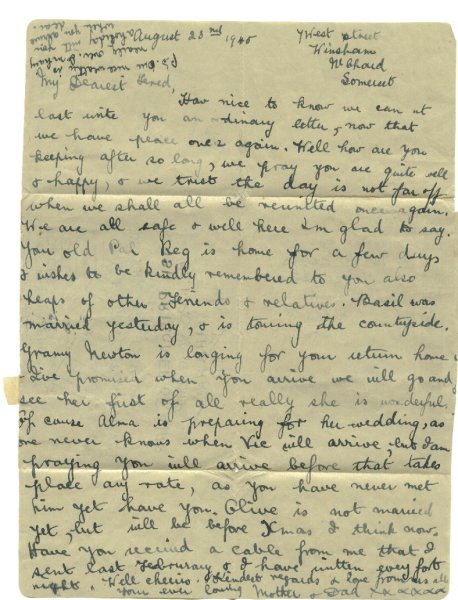 August 23rd 1945
7 West Street
Winsham
Nr Chard
Somerset
My Dearest
How nice to know we can at
last write you an ordinary letter, now that
we have peace once again. Well how are you
keeping after so long, we pray you are quite well
& happy, & we trust the day is not far off
when we shall all be reunited once again.
We are all safe & well here I'm glad to say.
You old Pal Reg is home for a few days
& wishes to be kindly remembered to you also
heaps of other Friends & relatives. Basil was
married yesterday, & is touring the countryside.
Granny Newton is longing for your return home
I've promised when you arrive we will go and
see her first of all really she is wonderful.
Of cause Alma is preparing for her wedding, as
one never knows when Vic will arrive, but I am
praying you will arrive before that takes
place any rate, as you have never met
him yet have you. Olive is not married
yet, but will be before Xmas I think now.
Have you received a cable from me that I
sent last February & I have written every fort
night. Well cheerio. Kindest regards & love from us all
Your ever loving Mother & Dad xxxxxx
P.S. Our
is
when you
dear.